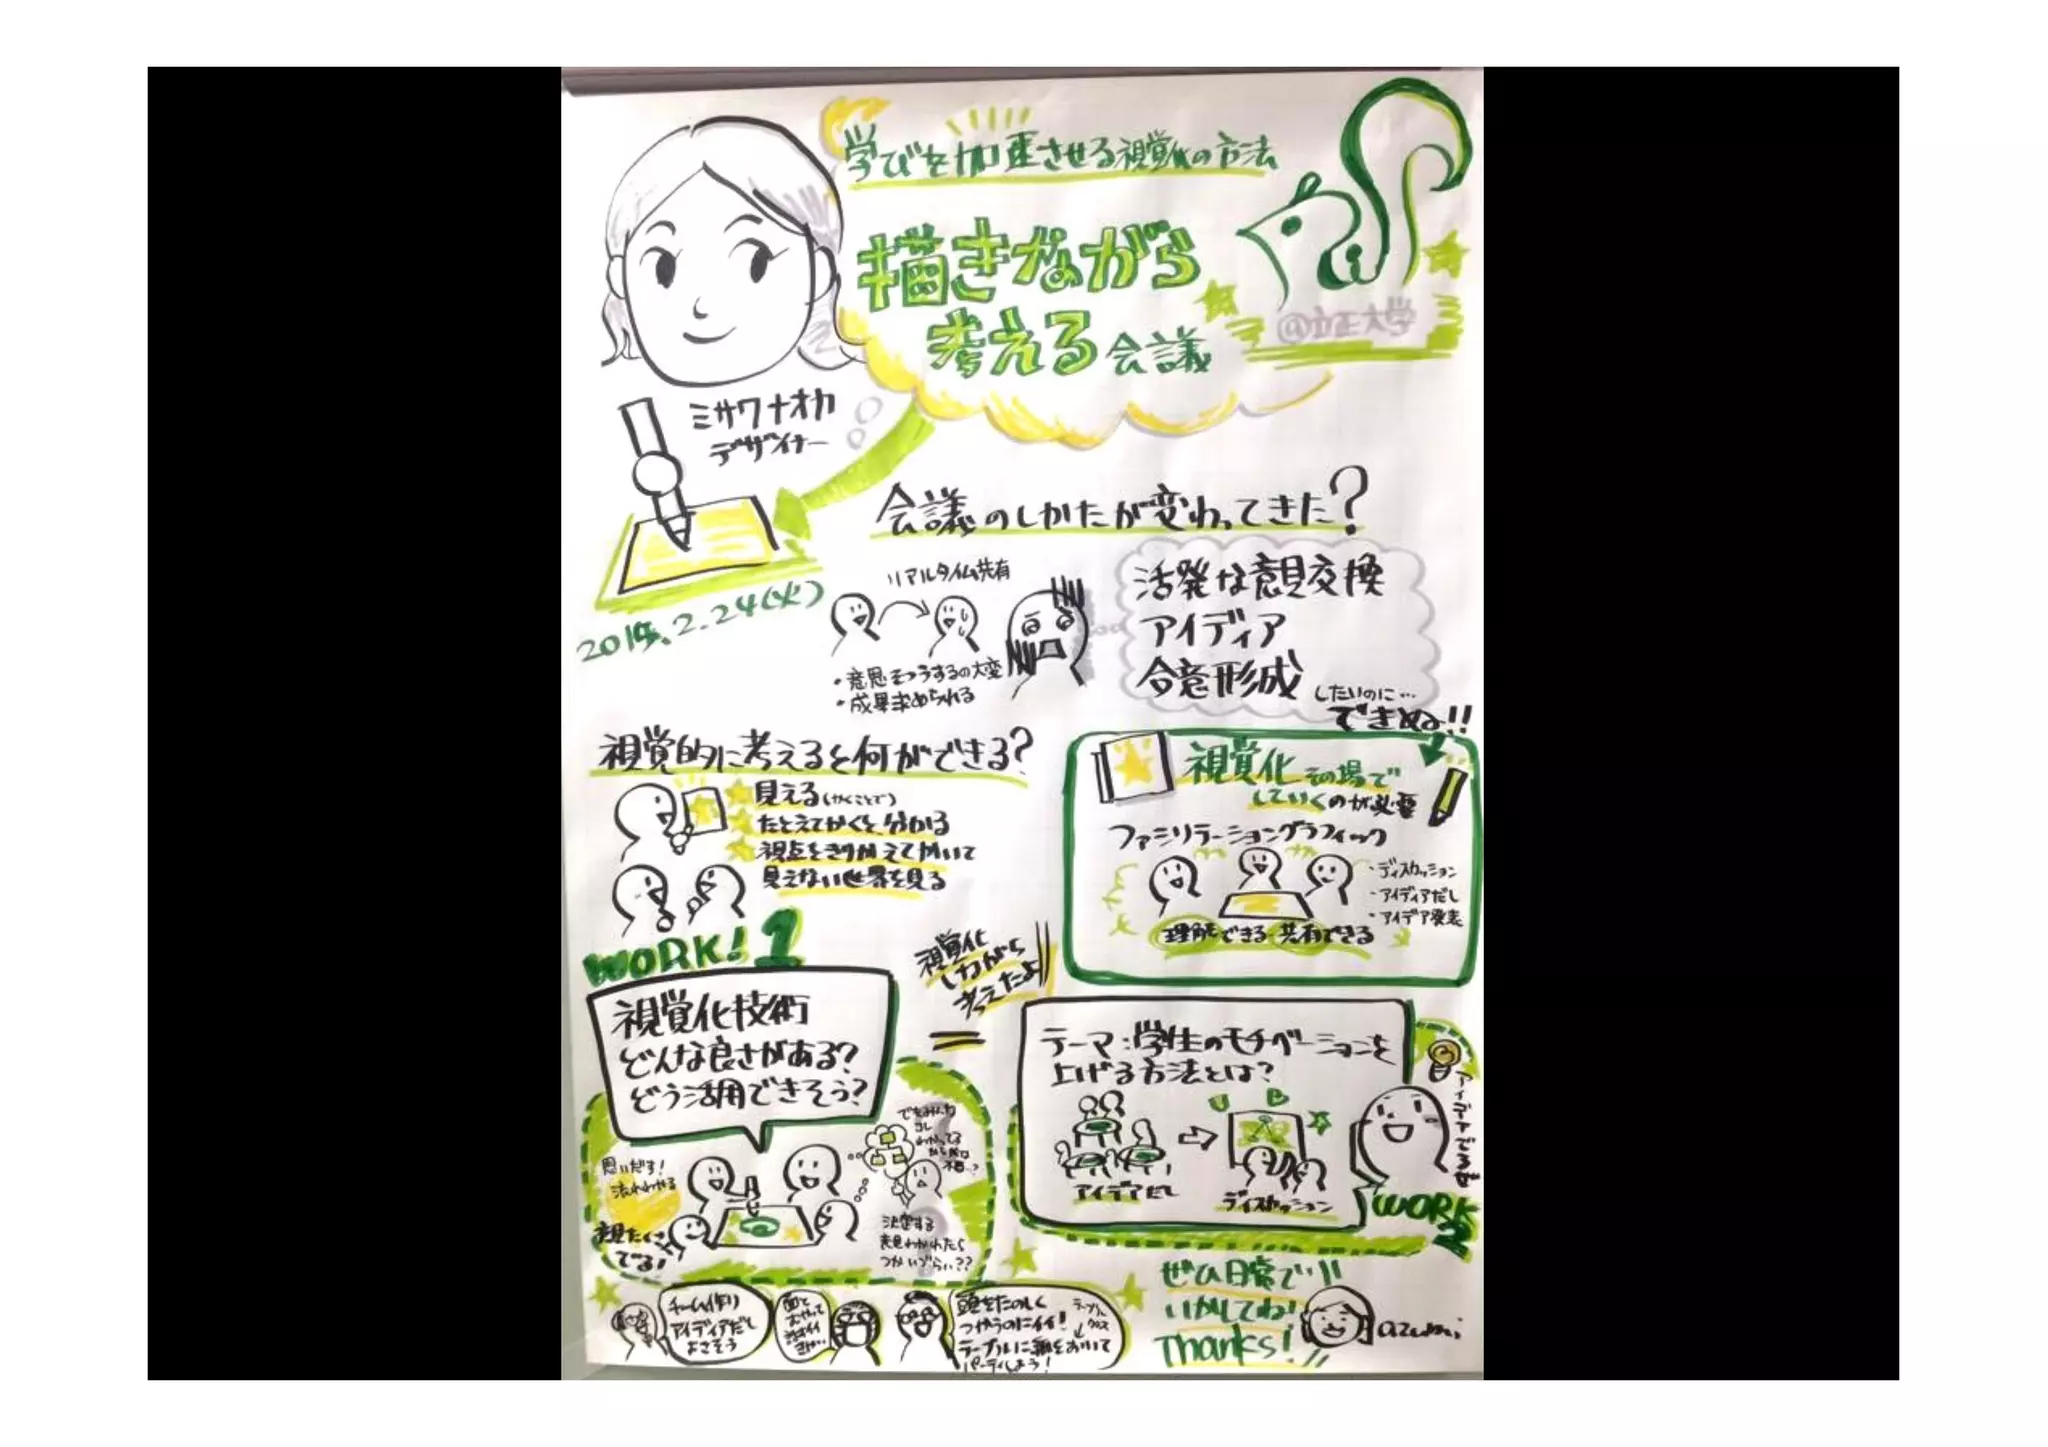 学びを加速させる視覚化の方法
描きながら
考える会議
@立正大学
ミサワナオカ
デザイナー
2015.2.24(火)
会議のしかたが変わってきた?
リアルタイム共有
・意思そつうするの大変
・成果求められる
活発な意見交換
アイディア
合意形成
したいのに…
できぬ!!
視覚的に考えると何ができる?
見える(かくことで)
たとえてかくと、分かる
視点をきりかえてかいて
見えない世界を見る
視覚化 その場で
していくのが必要
ファシリテーショングラフィック
・ディスカッション
・アイディアだし
・アイデア発表
理解できる 共有できる
WORK! 1
視覚化技術
どんな良さがある?
どう活用できそう?
視覚化
しながら
考えたよ
テーマ:学生のモチベーションを
上げる方法とは?
アイディアだし
ディスカッション
アイディアでるぜ
WORK 2
思いだす!
意見たくさん
でる!
でもみんな
コレ
わかってる
決定する
意見わかれたら
つかいづらい??
チーム作り
アイディアだし
よさそう
頭をたのしく
つかうのにイイ!
テーブル
クロス
テーブルに紙をおいて
パーティしよう!
ぜひ日常で!!
いかしてね!
Thanks!
azumi